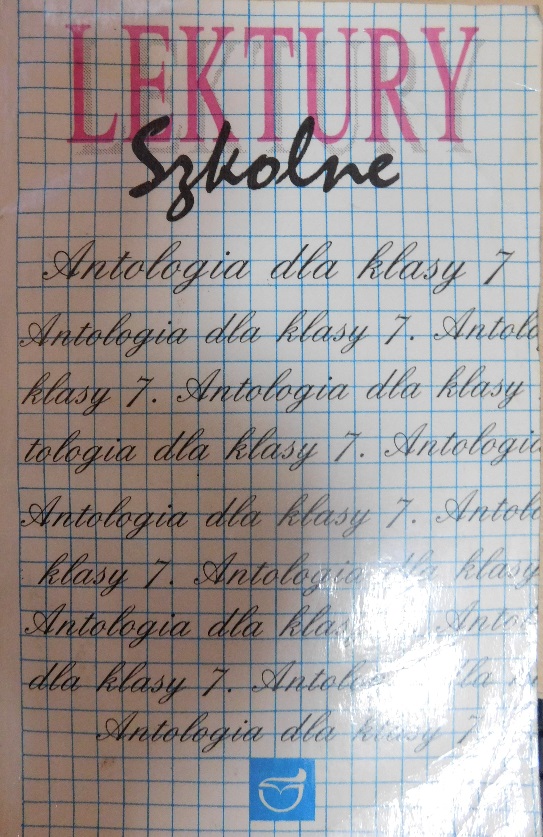 LEKTURY
Szkolne
Antologia dla klasy 7
Antologia dla klasy 7. Antolo
klasy 7. Antologia dla klasy
tologia dla klasy 7. Antologia
Antologia dla klasy 7. Antolo
klasy 7. Antologia dla klasy
Antologia dla klasy 7. Antol
dla klasy 7. Antologia dla
Antologia dla klasy 7